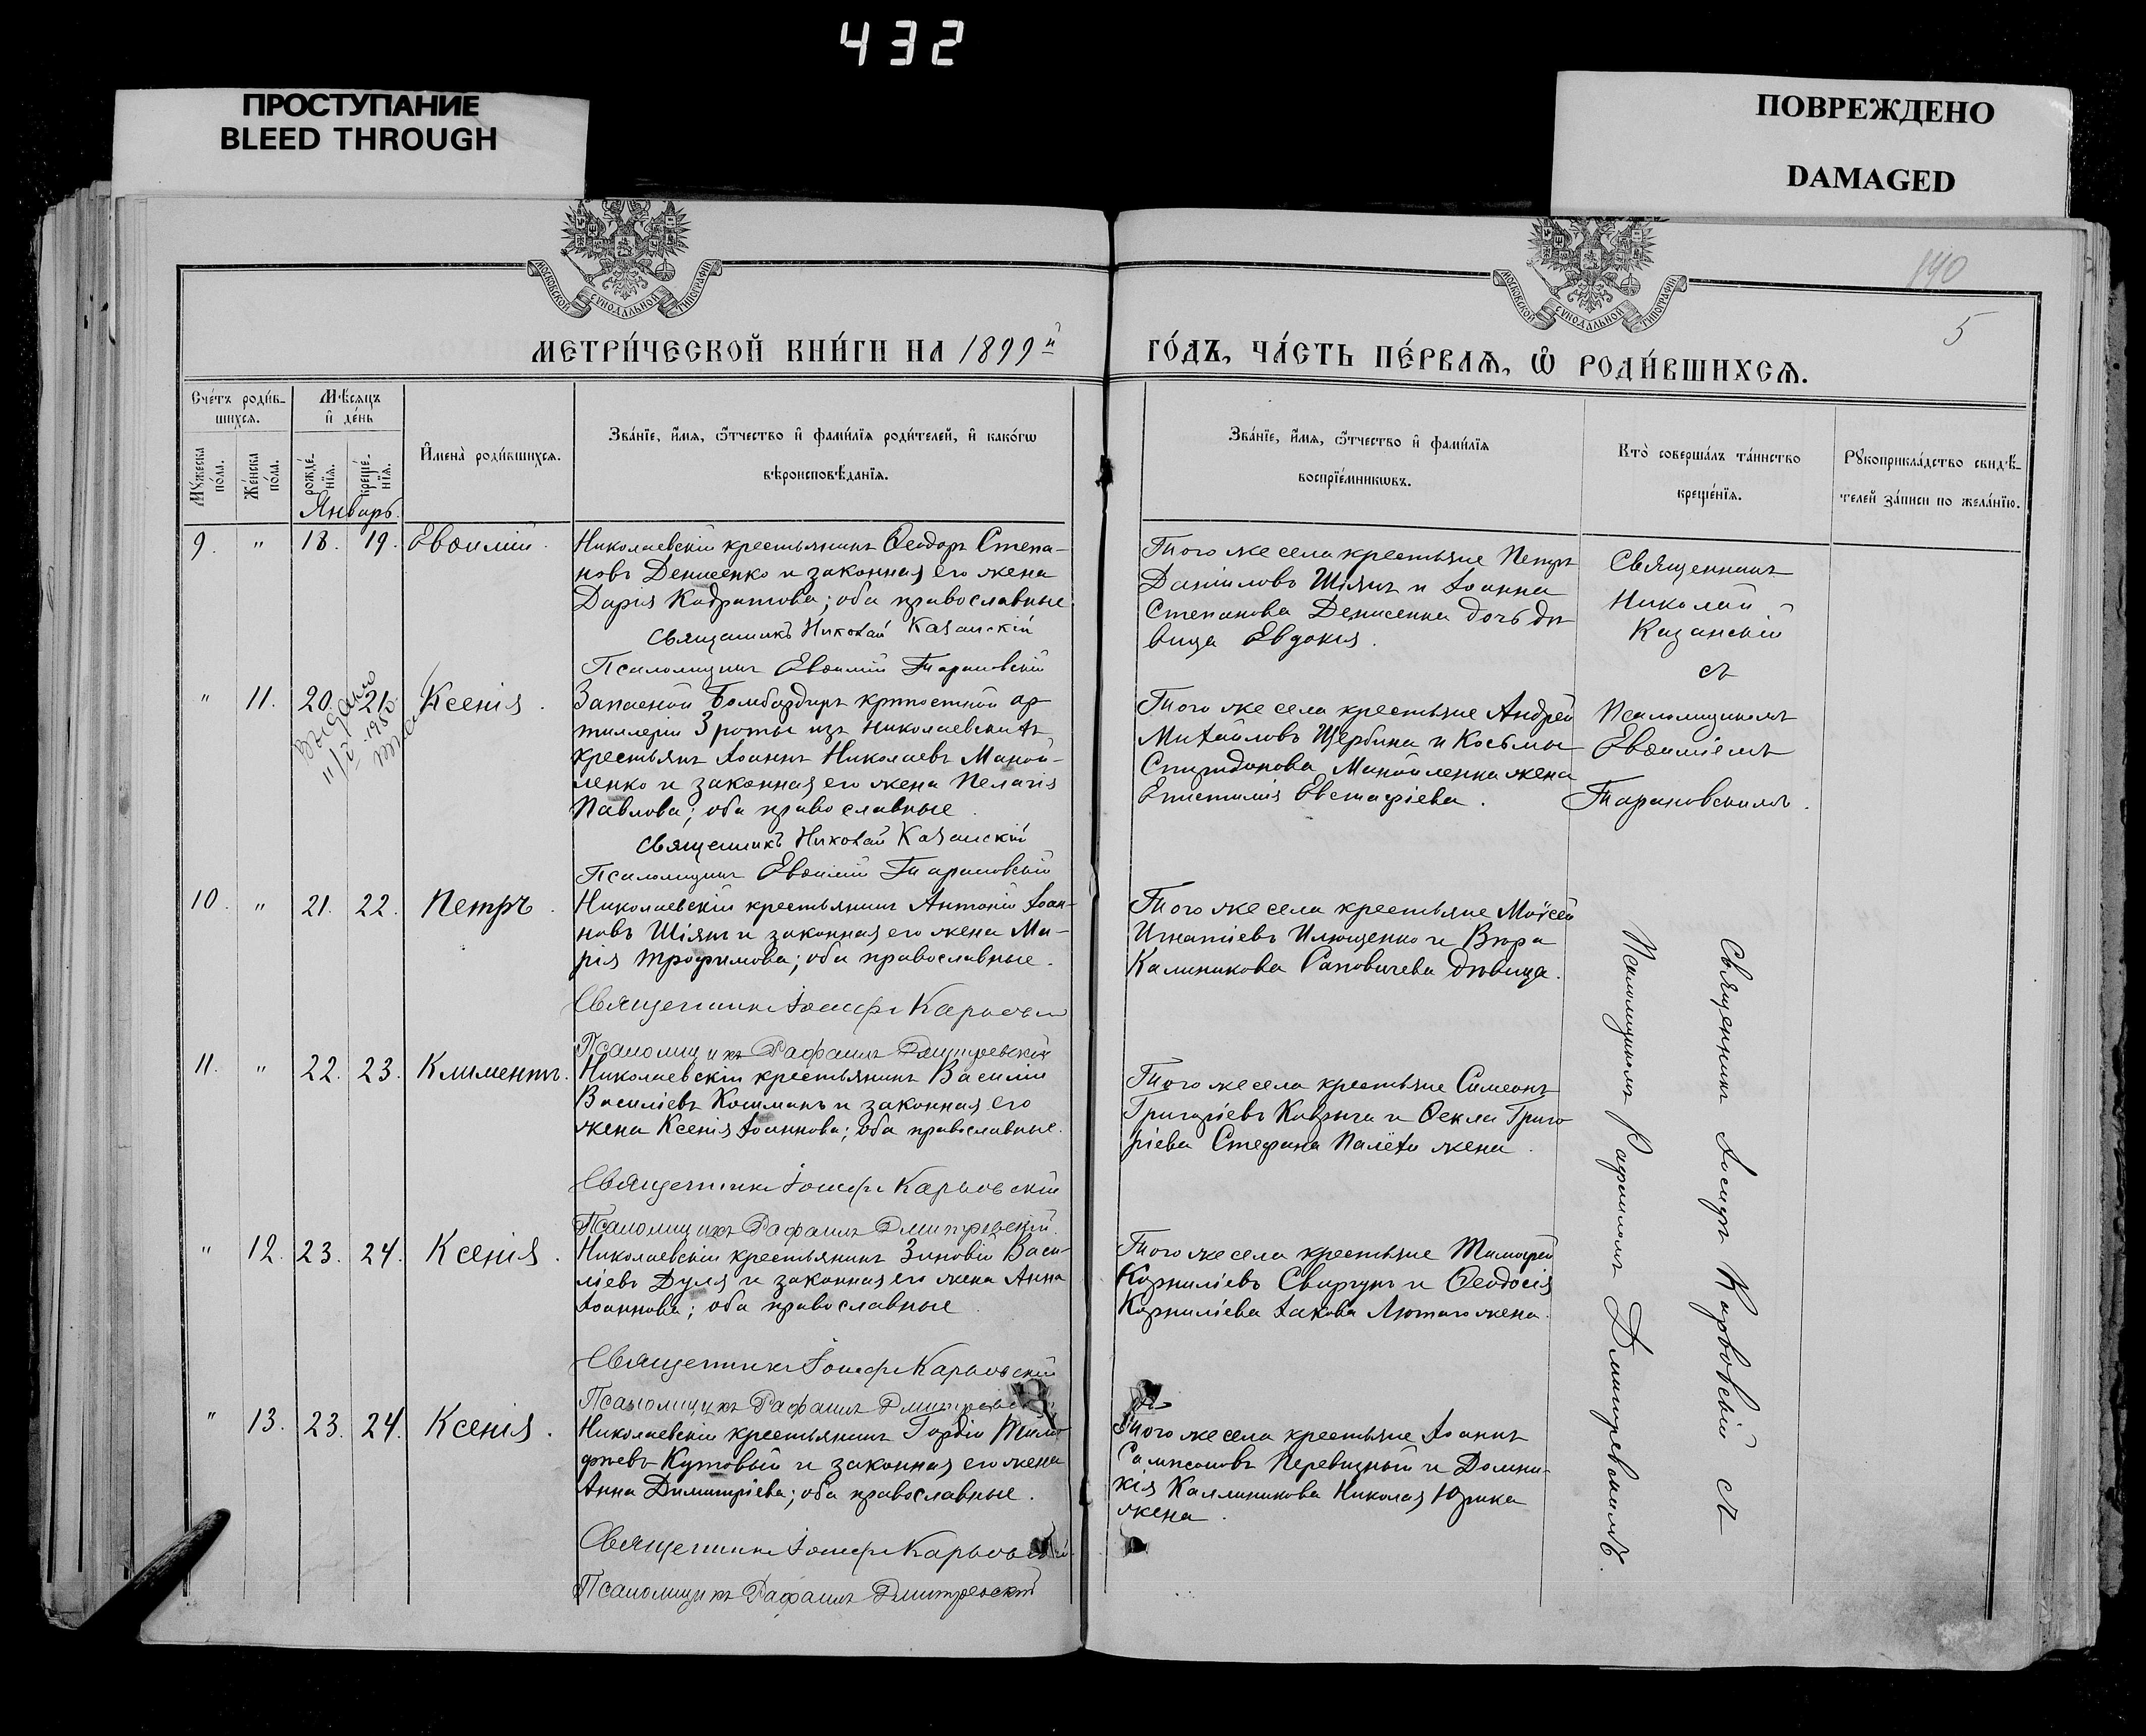 432
ПРОСТУПАНИЕ
BLEED THROUGH
ПОВРЕЖДЕНО
DAMAGED
МОСКОВСКОЙ СѴНОДАЛЬНОЙ ТИПОГРАФІИ
МОСКОВСКОЙ СѴНОДАЛЬНОЙ ТИПОГРАФІИ
140
5
МЕТРИ́ЧЕСКОЙ КНИ́ГИ НА 1899й
ГО́ДЪ, ЧА́СТЬ ПЕ́РВАѦ, Ѽ РОДИ́ВШИХСѦ.
Сче́тъ роди́в-
шихсѧ.
Мꙋ́жеска по́ла.
Же́нска по́ла.
Мѣ́сѧцъ
и҆ де́нь
рожде́-
нїѧ.
креще́-
нїѧ.
Январь.
И҆мена̀ роди́вшихсѧ.
Зва́нїе, и҆́мѧ, ѻ҆́тчество и҆ фами́лїѧ роди́телей, и҆ како́гѡ
вѣроисповѣ́данїѧ.
Зва́нїе, и҆́мѧ, ѻ҆́тчество и҆ фами́лїѧ
воспрїе́мникѡвъ.
Кто̀ соверша́лъ та́инство
креще́нїѧ.
Рꙋкоприкла́дство свидѣ́-
телей за́писи по жела́нїю.
9. " 18. 19. Евѳимій.
Николаевскій крестьянинъ Ѳеодоръ Степа-
новъ Денисенко и законная его жена
Дарія Кодратова; оба православные.
Священникъ Николай Казанскій
Псаломщикъ Евѳимій Тарановскій
Того же села крестьяне Петръ
Даніиловъ Шіянъ и Іоанна
Степанова Денисенка дочь дѣ-
вица Евдокія.
Священникъ
Николай
Казанскій
съ
Псаломщикомъ
Евѳиміемъ
Тарановскимъ.
" 11. 20. 21. Ксенія.
Выдано
1950
Запасной Бомбардиръ крѣпостной ар-
тиллеріи 3 роты изъ Николаевскихъ
крестьянъ Іоаннъ Николаевъ Маной-
ленко и законная его жена Пелагія
Павлова; оба православные.
Священникъ Николай Казанскій
Псаломщикъ Евѳимій Тарановскій
Того же села крестьяне Андрей
Михайловъ Щербина и Косьмы
Спиридонова Манойленка жена
Епистимія Евстафіева.
10. " 21. 22. Петръ.
Николаевскій крестьянинъ Антоній Іоан-
новъ Шіянъ и законная его жена Ма-
рія Трофимова; оба православные.
Священникъ Іосифъ Карповскій
Псаломщикъ Рафаилъ Дмитревскій
Того же села крестьяне Моѵсей
Игнатіевъ Илющенко и Вѣра
Калиникова Саповичева дѣвица.
Священникъ Іосифъ Карповскій съ
Псаломщикомъ Рафаиломъ Дмитревскимъ.
11. " 22. 23. Климентъ.
Николаевскій крестьянинъ Василій
Василіевъ Кошманъ и законная его
жена Ксенія Іоаннова; оба православные.
Священникъ Іосифъ Карповскій
Псаломщикъ Рафаилъ Дмитревскій
Того же села крестьяне Симеонъ
Григоріевъ Кавзыга и Ѳекла Григо-
ріева Стефана Палёхи жена.
" 12. 23. 24. Ксенія.
Николаевскій крестьянинъ Зиновій Васи-
ліевъ Дуля и законная его жена Анна
Іоаннова; оба православные.
Священникъ Іосифъ Карповскій
Псаломщикъ Рафаилъ Дмитревскій
Того же села крестьяне Тимофей
Корниліевъ Свиргунъ и Ѳеодосія
Корниліева Іакова Лютаго жена.
" 13. 23. 24. Ксенія.
Николаевскій крестьянинъ Гордій Тимо-
фѣевъ Кутовый и законная его жена
Анна Димитріева; оба православные.
Священникъ Іосифъ Карповскій
Псаломщикъ Рафаилъ Дмитревскій
Того же села крестьяне Іоаннъ
Сампсоновъ Перевизный и Домни-
кія Каллиникова Николая Юрика
жена.